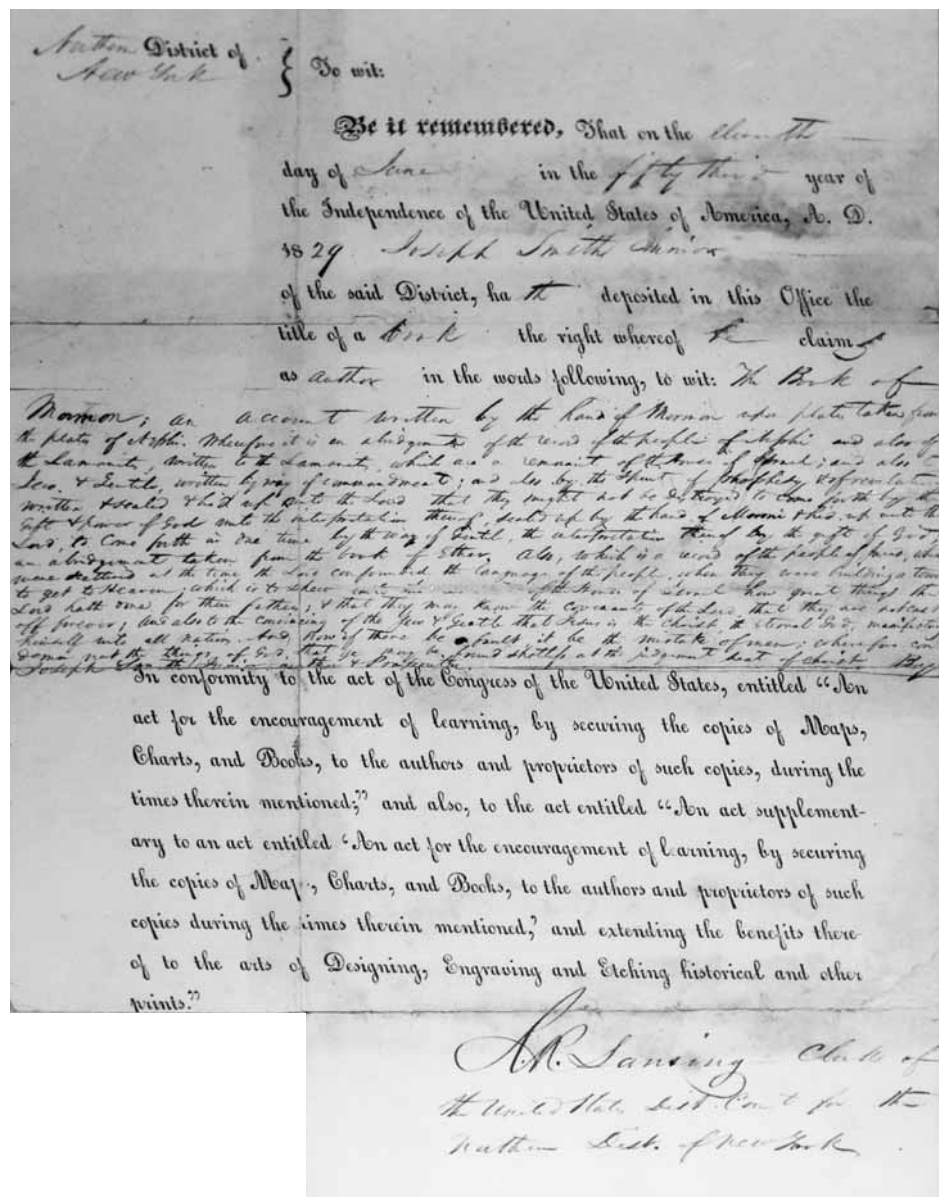 Northern District of
New York
To wit:
Be it remembered, That on the eleventh
day of June in the fifty third year of
the Independence of the United States of America, A. D.
1829 Joseph Smith Junior
of the said District, hath deposited in this Office the
title of a book the right whereof he claims
as author in the words following, to wit: The Book of
Mormon; an account written by the hand of Mormon upon plates taken from
the plates of Nephi. Wherefore it is an abridgment of the record of the people of Nephi and also of
the Lamanites, written to the Lamanites, which are a remnant of the House of Israel; and also
Jew & Gentile, written by way of commandment; and also by the Spirit of Prophesy & of revelation
written & sealed & hid up unto the Lord that they might not be destroyed to come forth by the
gift & power of God unto the interpretation thereof, sealed up by the hand of Moroni & hid up unto the
Lord, to come forth in due time by the way of Gentile the interpretation thereof by the gift of God;
an abridgment taken from the book of Ether. Also, which is a record of the people of Jared, who
were scattered at the time the Lord confounded the language of the people when they were building a tower
to get to Heaven; which is to shew of the House of Israel how great things the
Lord hath done for their fathers; & that they may know the covenants of the Lord, that they are not cast
off forever; and also to the convincing of the Jew & Gentile that Jesus is the Christ the eternal God, manifesting
himself unto all nations. And now if there be a fault, it be the mistake of men; wherefore con
demn not the things of God, that ye may be found spotless at the judgment seat of Christ. By
Joseph Smith Junior author & Proprietor
In conformity to the act of the Congress of the United States, entitled “An
act for the encouragement of learning, by securing the copies of Maps,
Charts, and Books, to the authors and proprietors of such copies, during the
times therein mentioned;” and also, to the act entitled “An act supplement-
ary to an act entitled ‘An act for the encouragement of learning, by securing
the copies of Maps, Charts, and Books, to the authors and proprietors of such
copies during the times therein mentioned,’ and extending the benefits there-
of to the arts of Designing, Engraving and Etching historical and other
prints.”
R. R. Lansing Clerk of
the United States Dist. Court for the
Northern Dist. of New York